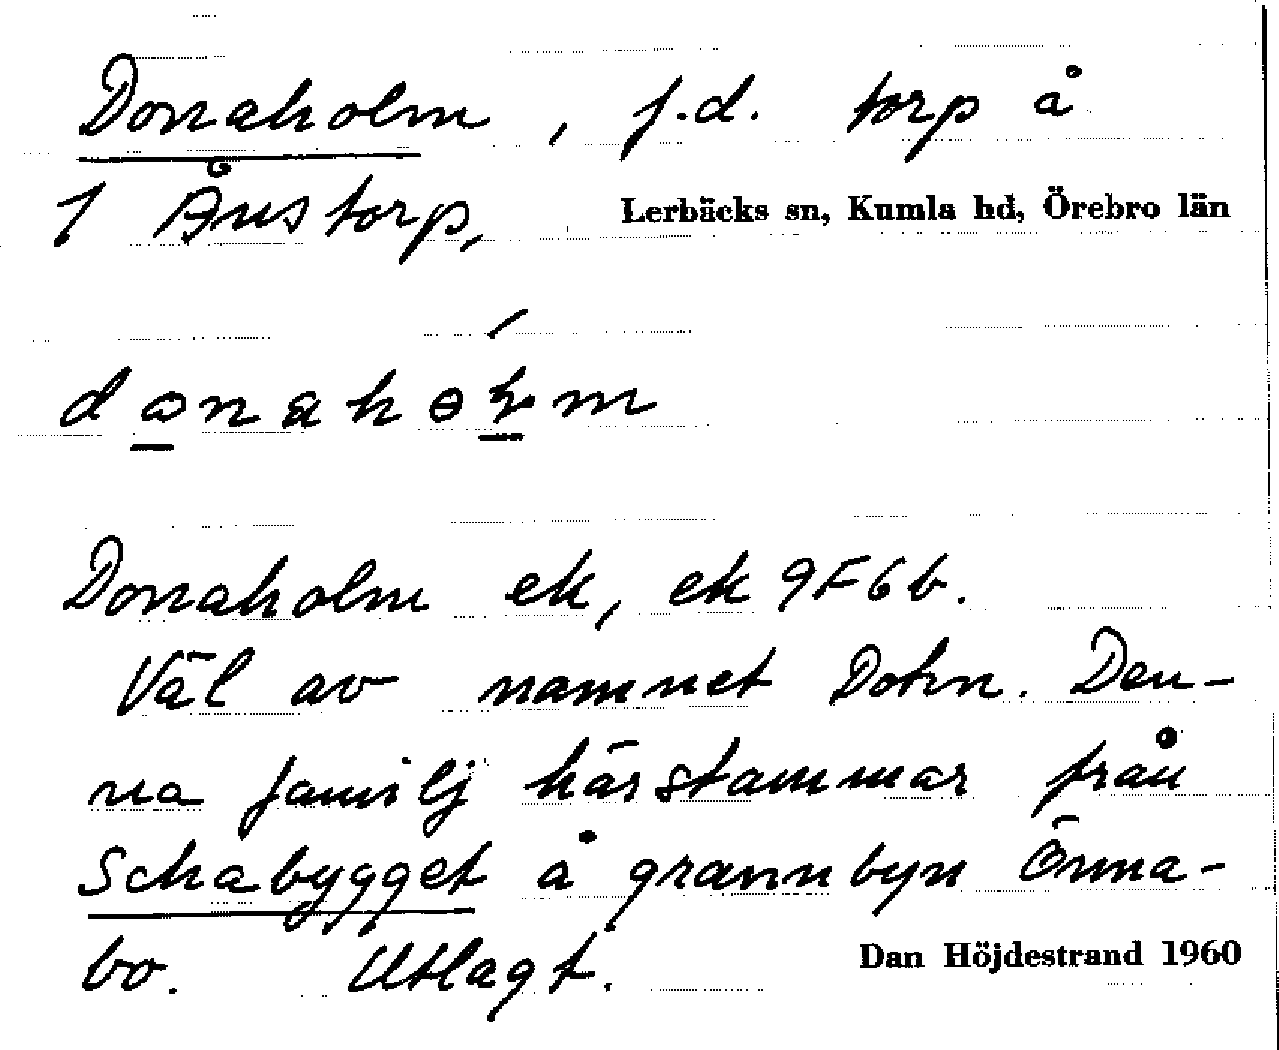 Donaholm, f.d. torp å
1 Ånstorp, Lerbäcks sn, Kumla hd, Örebro län
Donaholm ek, ek 9F6b.
Väl av namnet Dohn. Den-
na familj härstammar från
Schabygget å grannbyn Önna-
bo. Utlagt.
Dan Höjdestrand 1960